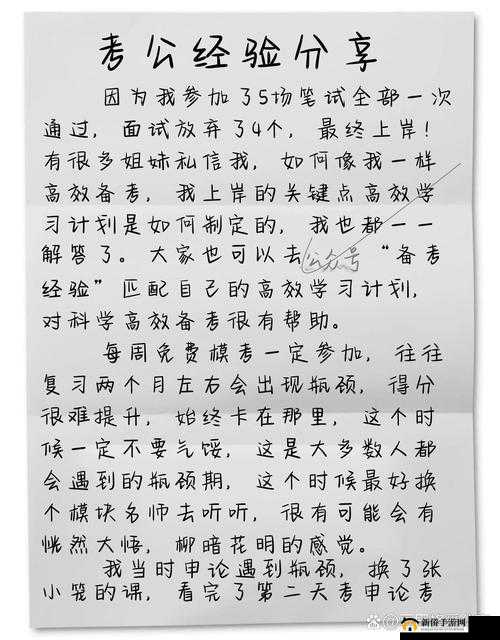 考公经验分享
因为我参加了5场笔试全部一次
通过，面试放弃了4个，最终上岸！
有很多姐妹私信我，如何像我一样
高效备考，我上岸的关键点高效学
习计划是如何制定的，我也都一一
解答了。大家也可以去公众号“备考
经验”匹配自己的高效学习计划，
对科学高效备考很有帮助。
每周免费模考一定参加，往往
复习两个月左右会出现瓶颈，得分
很难提升，始终卡在那里，这个时
候一定不要气馁，这是大多数人都
会遇到的瓶颈期，这个时候最好换
个模块名师去听听，很有可能会有
恍然大悟，柳暗花明的感觉。
我当时申论遇到瓶颈，换了张
小笼的课，看完了第二天考申论考
新侨手游网